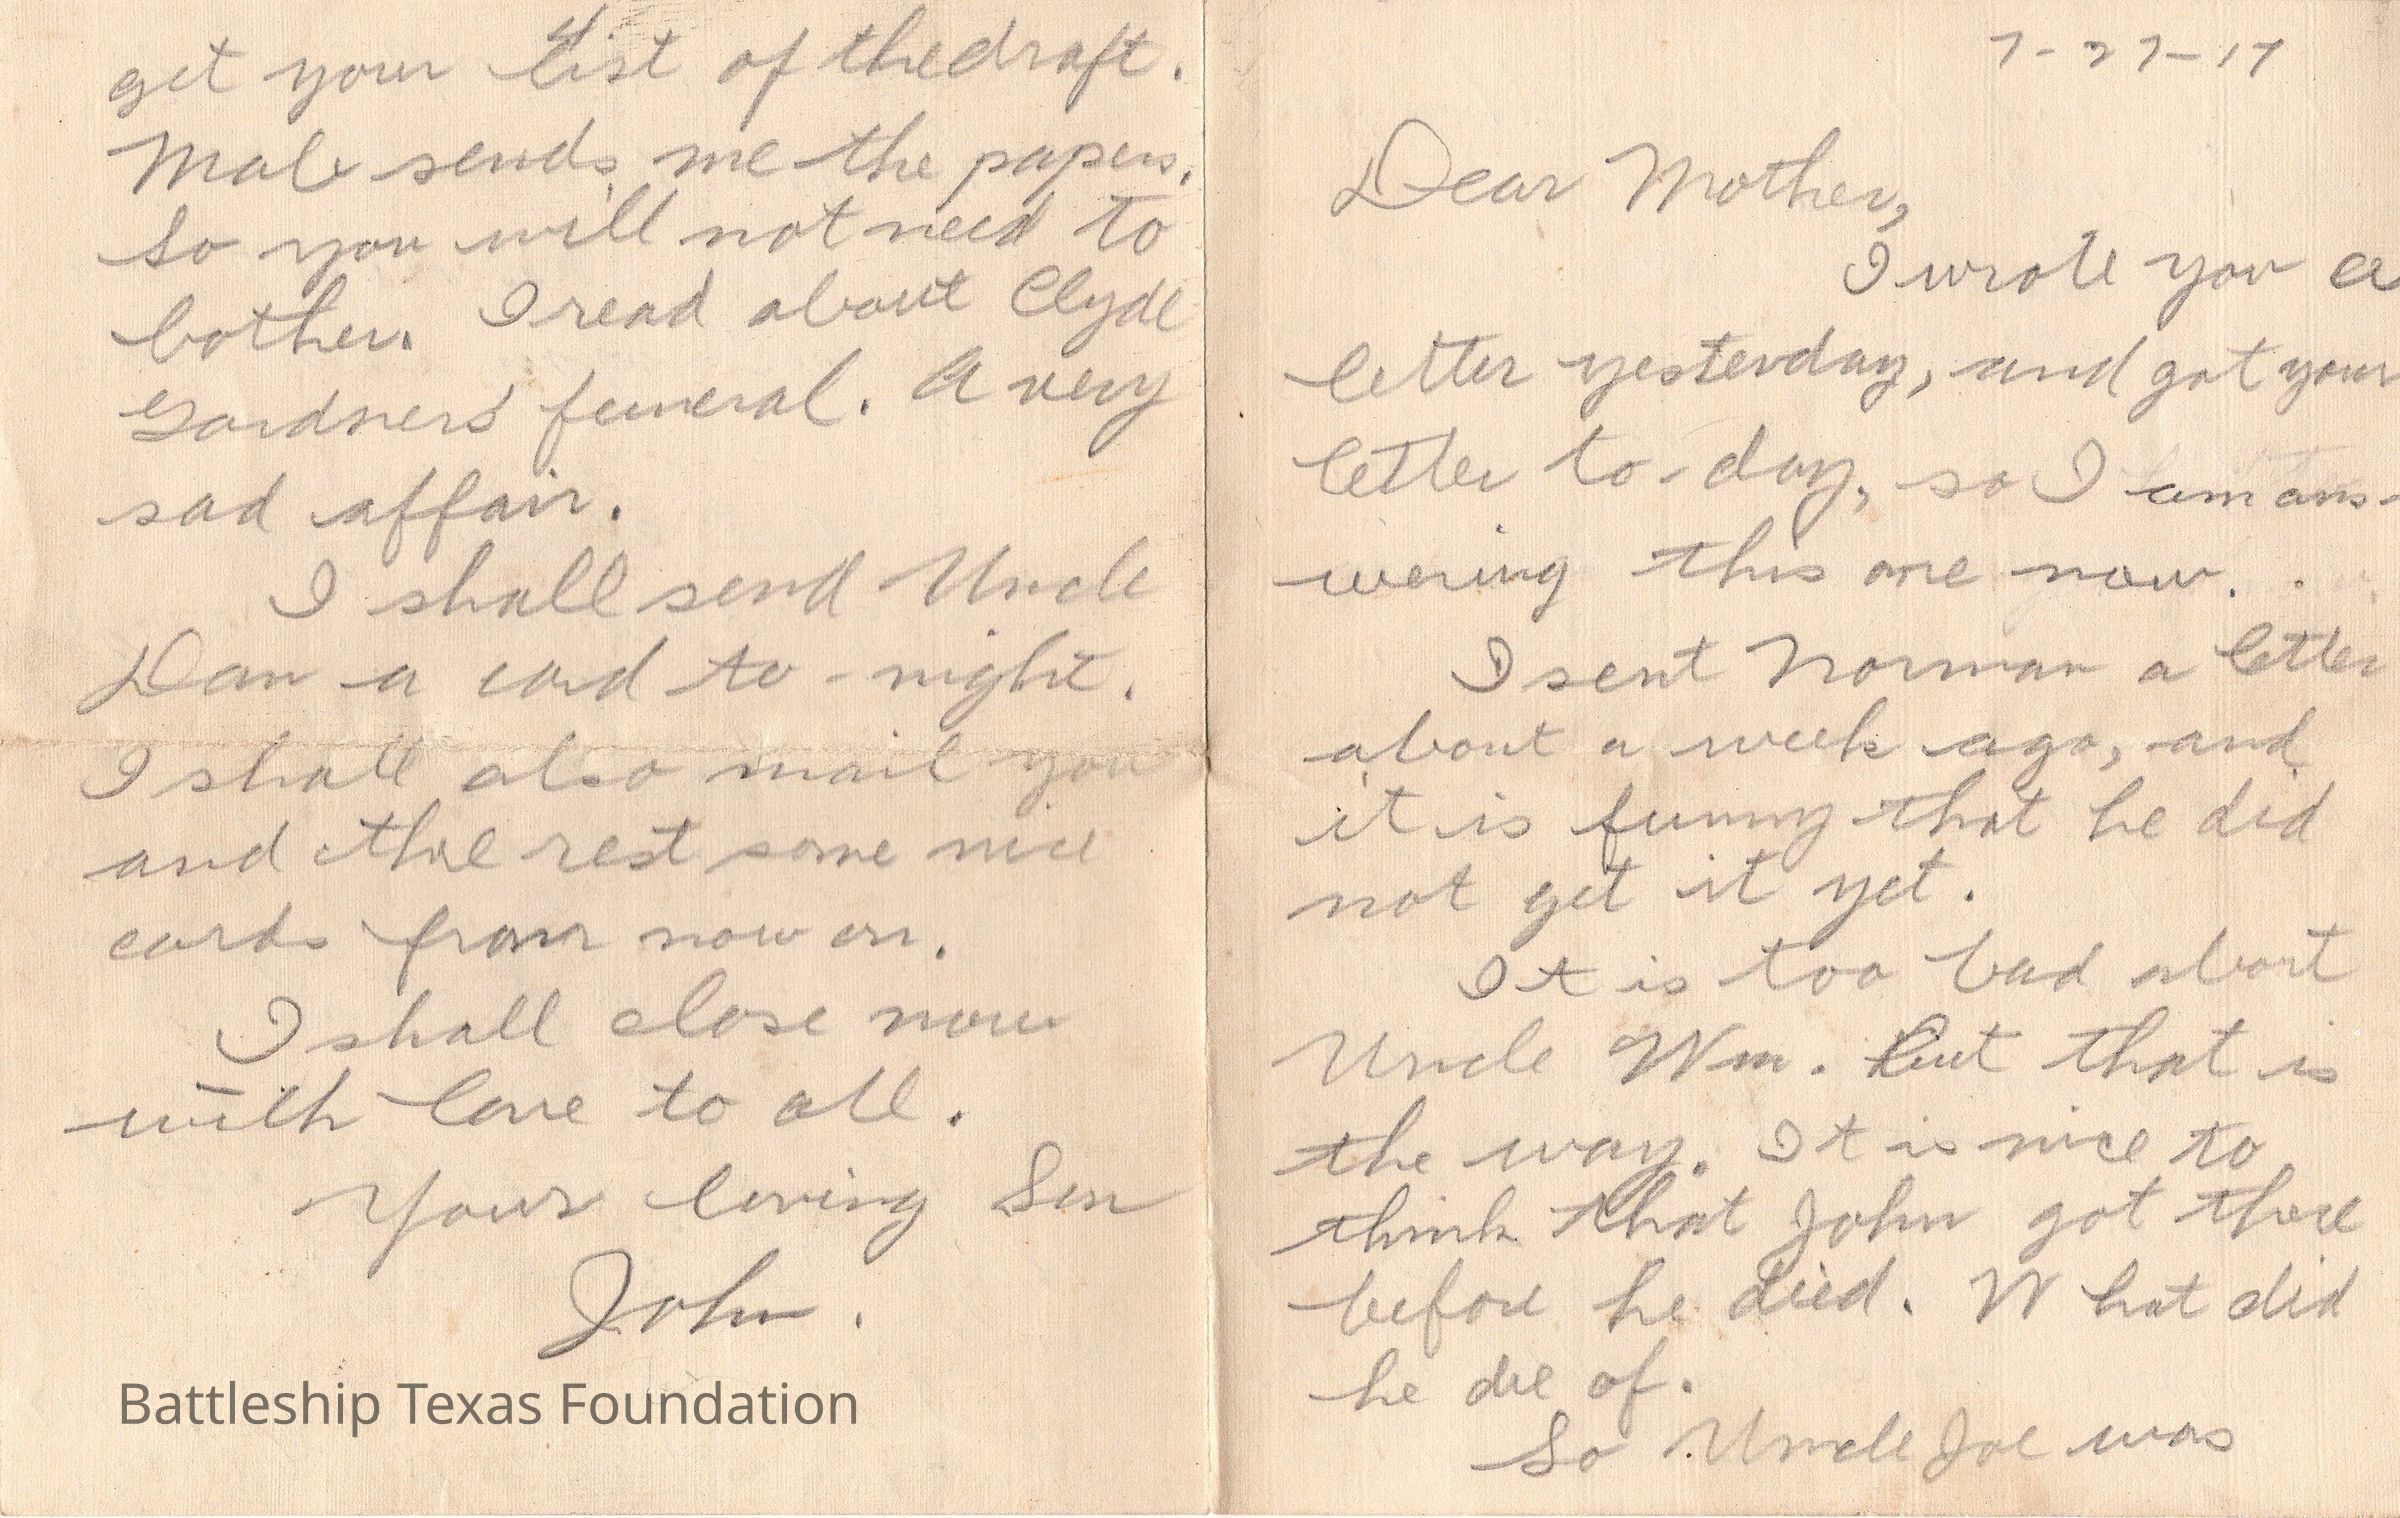 7-27-17
Dear Mother,
I wrote you a
letter yesterday, and got your
letter to-day, so I am ans-
wering this one now.
I sent Norman a letter
about a week ago, and
it is funny that he did
not get it yet.
It is too bad about
Uncle Wm. But that is
the way. It is nice to
think that John got there
before he died. What did
he die of.
So Uncle Joe was
get your list of the draft.
sends me the papers,
so you will not need to
bother. I read about Clyde
Gardners' funeral. A very
sad affair.
I shall send Uncle
Dan a card to-night.
I shall also mail you
and the rest some nice
cards from now on.
I shall close now
with love to all.
Your loving Son
John.
Battleship Texas Foundation